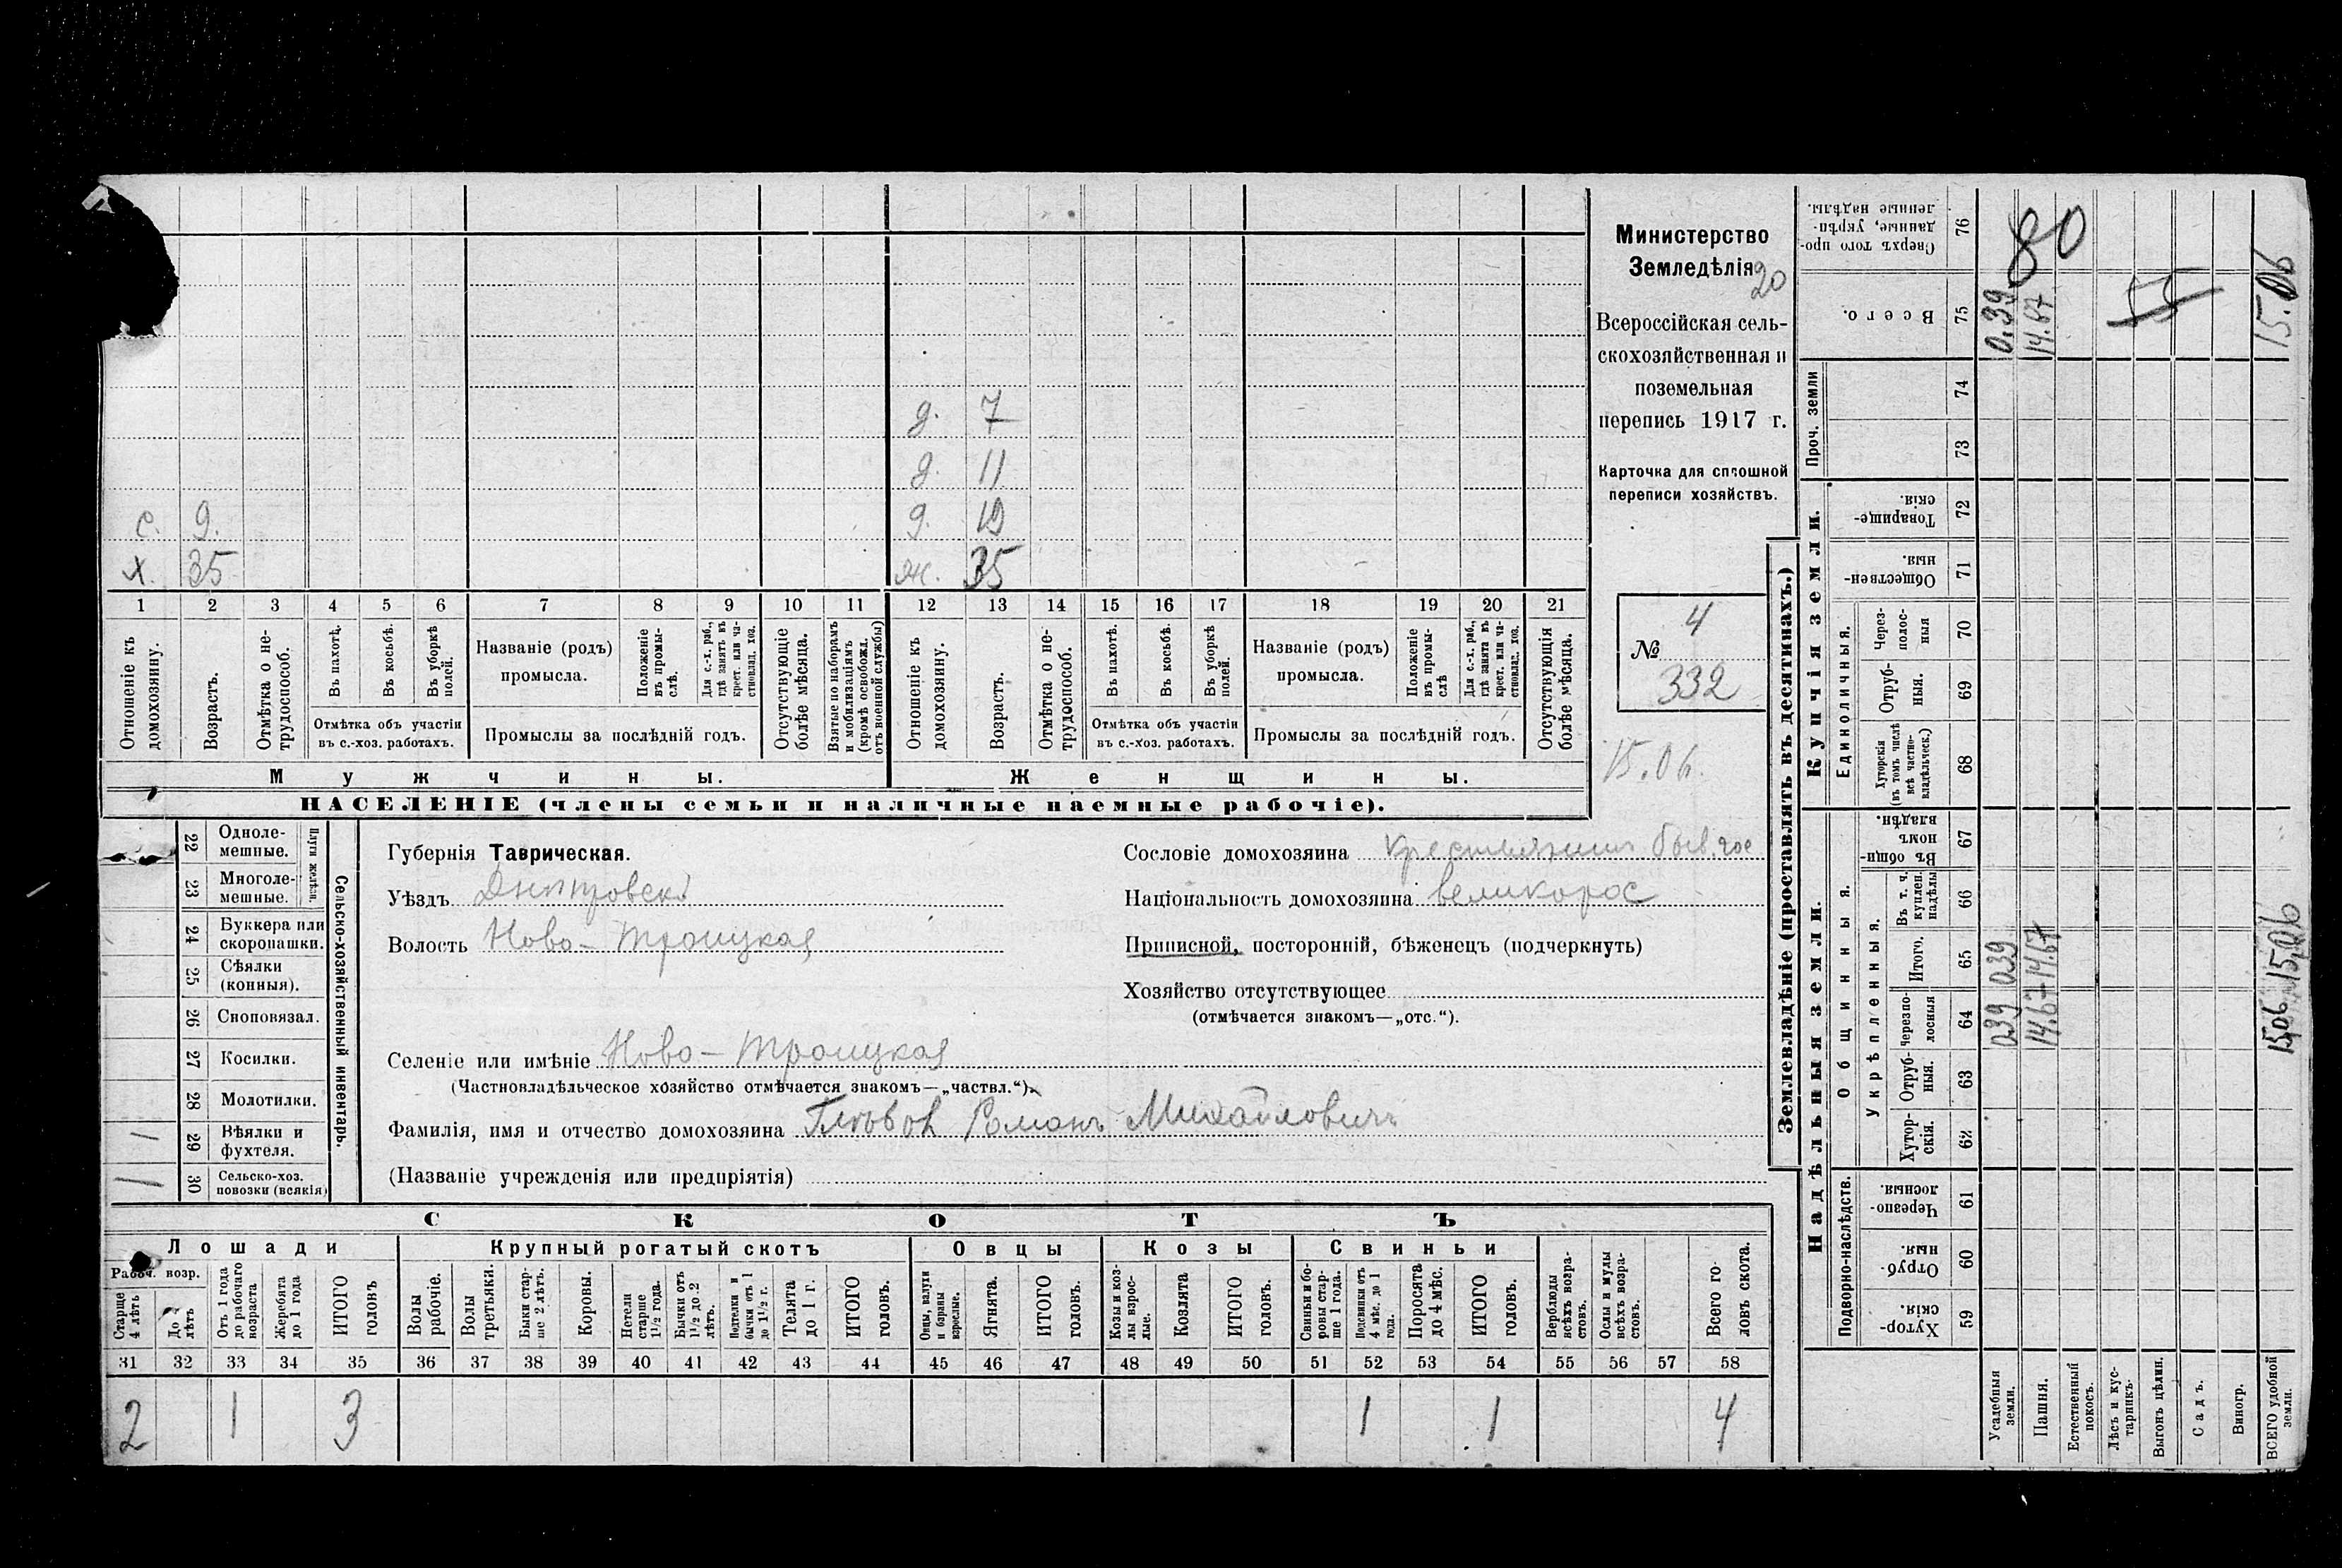 д. 7
д. 11
с. 9. д. 12
х. 35 ж. 35
1 2 3 4 5 6 7 8 9 10 11 12 13 14 15 16 17 18 19 20 21
Отношеніе къ домохозяину.
Возрастъ.
Отмѣтка о нетрудоспособ.
Въ пахотѣ.
Въ косьбѣ.
Въ уборкѣ полей.
Отмѣтка объ участіи
въ с.-хоз. работахъ.
Названіе (родъ)
промысла.
Положеніе въ промыслѣ.
Для с.-х. раб., гдѣ занятъ въ крест. или частновлад. хоз.
Промыслы за послѣдній годъ.
Отсутствующіе болѣе мѣсяца.
Взятые по наборамъ и мобилизаціямъ (кромѣ освобожд. отъ военной службы)
Отношеніе къ домохозяину.
Возрастъ.
Отмѣтка о нетрудоспособ.
Въ пахотѣ.
Въ косьбѣ.
Въ уборкѣ полей.
Отмѣтка объ участіи
въ с.-хоз. работахъ.
Названіе (родъ)
промысла.
Положеніе въ промыслѣ
Для с.-х. раб., гдѣ занята въ крест. или частновлад. хоз.
Промыслы за послѣдній годъ.
Отсутствующія болѣе мѣсяца.
Мужчины. Женщины.
НАСЕЛЕНІЕ (члены семьи и наличные наемные рабочіе).
Министерство
Земледѣлія
20
Всероссійская сель-
скохозяйственная и
поземельная
перепись 1917 г.
Карточка для сплошной
переписи хозяйствъ.
4
№
332
15.06.
Сельско-хозяйственный инвентарь.
Плуги желѣзн.
22 Однолемешные.
23 Многолемешные.
24 Буккера или скоропашки.
25 Сѣялки (конныя).
26 Сноповязал.
27 Косилки.
28 Молотилки.
1 29 Вѣялки и фухтеля.
1 30 Сельско-хоз. повозки (всякія)
Губернія Таврическая.
Уѣздъ Днѣпровскій
Волость Ново-Троицкая
Сословіе домохозяина крестьянинъ быв. гос
Національность домохозяина великорос
Приписной, посторонній, бѣженецъ (подчеркнуть)
Хозяйство отсутствующее
(отмѣчается знакомъ—„отс.“).
Селеніе или имѣніе Ново-Троицкая
(Частновладѣльческое хозяйство отмѣчается знакомъ—„частвл.“).
Фамилія, имя и отчество домохозяина Глѣбов Романъ Михайловичъ
(Названіе учрежденія или предпріятія)
СКОТЪ
Лошади Крупный рогатый скотъ Овцы Козы Свиньи
Рабоч. возр.
Старше 4 лѣтъ
До лѣтъ
Отъ 1 года до рабочаго возраста
Жеребята до 1 года
ИТОГО головъ
Волы рабочіе.
Волы третьяки.
Быки старше 2 лѣтъ.
Коровы.
Нетели старше 1 1/2 года.
Бычки отъ 1 1/2 до 2 лѣтъ.
Подтелки и бычки отъ 1 до 1 1/2 г.
Телята до 1 г.
ИТОГО головъ.
Овцы, валухи и бараны взрослые.
Ягнята.
ИТОГО головъ.
Козы и козлы взрослые.
Козлята
ИТОГО головъ.
Свиньи и боровы старше 1 года.
Подсвинки отъ 4 мѣс. до 1 года.
Поросята до 4 мѣс.
ИТОГО головъ.
Верблюды всѣхъ возрастовъ.
Ослы и мулы всѣхъ возрастовъ.
Всего головъ скота.
31 32 33 34 35 36 37 38 39 40 41 42 43 44 45 46 47 48 49 50 51 52 53 54 55 56 57 58
2 1 3 1 1 4
Землевладѣніе (проставлять въ десятинахъ.)
Надѣльныя земли. Купчія земли. Проч. земли
Подворно-наслѣдств. Общинныя. Единоличныя.
Укрѣпленныя.
59 Хуторскія.
60 Отрубныя.
61 Черезполосныя.
62 Хуторскія.
63 Отрубныя.
64 Черезполосныя
65 Итого.
66 Въ т. ч. куплен. надѣлы
67 Въ общинномъ владѣн.
68 Хуторскія (въ томъ числѣ всѣ частновладѣльческ.)
69 Отрубныя.
70 Черезполосныя
71 Общественныя.
72 Товарищескія.
73
74
75 Всего.
76 Сверхъ того проданные, укрѣпленные надѣлы.
Усадебныя земли. 0.39 0.39 0.39
Пашня. 14.67 14.67 14.67
80
Естественный покосъ.
Лѣсъ и кустарникъ.
Выгонъ цѣлин.
55
Садъ.
Виногр.
ВСЕГО удобной земли. 15.06 15.06 15.06